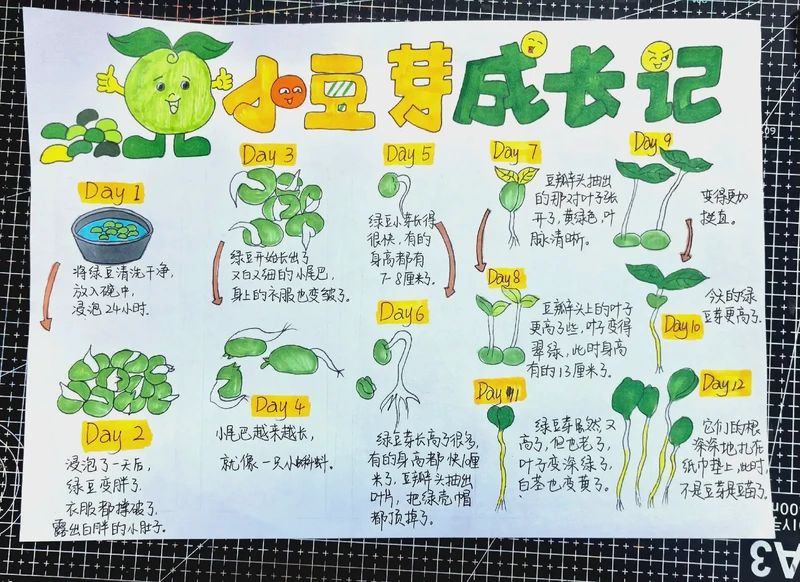 小豆芽成长记
Day 1
将绿豆清洗干净,
放入碗中,
浸泡24小时.
Day 2
浸泡了一天后,
绿豆变胖了.
衣服都撑破了.
露出白胖的小肚子.
Day 3
绿豆开始长出了
又白又细的小尾巴,
身上的衣服也变皱了.
Day 4
小尾巴越来越长,
就像一只小蝌蚪.
Day 5
绿豆小芽长得
很快,有的
身高都有
7-8厘米了.
Day 6
绿豆芽长高了很多,
有的身高都快10厘
米了.豆瓣头抽出
叶片,把绿壳帽
都顶掉了.
Day 7
豆瓣头抽出
的那对叶子张
开了,黄绿色,叶
脉清晰.
Day 8
豆瓣头上的叶子
更高了些,叶子变得
翠绿,此时身高
有的13厘米了.
Day 9
变得更加
挺直.
Day 10
今天的绿
豆芽更高了.
Day 11
绿豆芽虽然又
高了,但也老了,
叶子变深绿了,
白茎也变黄了.
Day 12
它们的根
深深地扎在
纸巾垫上,此时,
不是豆芽是豆苗了.
A3